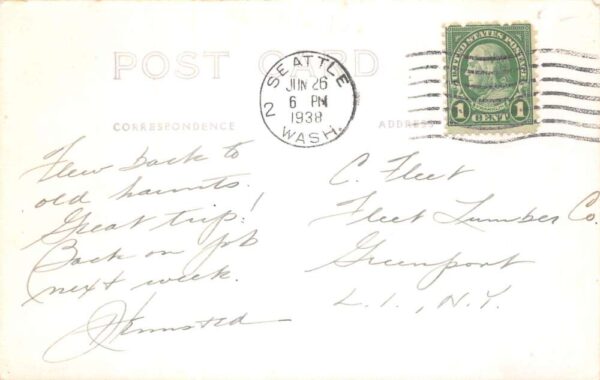 POST CARD
SEATTLE
JUN 26
6 PM
1938
WASH.
2
UNITED STATES POSTAGE
1 CENT 1
CORRESPONDENCE
ADDRESS
Flew back to
old haunts.
Great trip!
Back on job
next week.
C. Fleet
Fleet Lumber Co.
Greenport
L.I., N.Y.